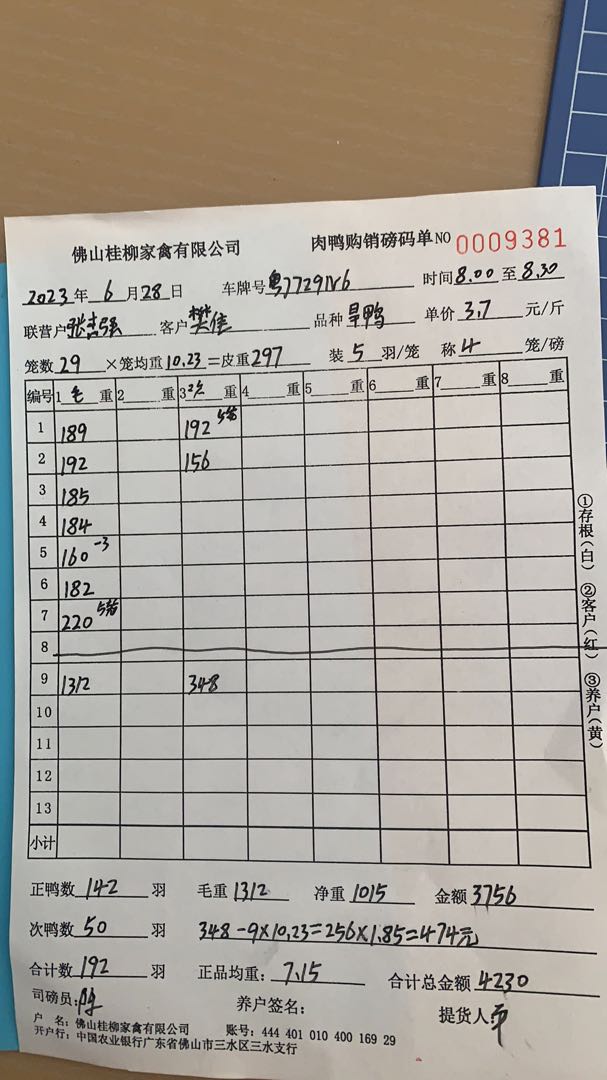 佛山桂柳家禽有限公司 肉鸭购销磅码单 NO 0009381
2023年 6月28日 车牌号 时间8.00至8.30
联营户 张杰强 客户 樊佳 品种 旱鸭 单价 3.7 元/斤
笼数 29 ×笼均重 10.23 =皮重 297 装 5 羽/笼 称 4 笼/磅
编号 1 毛 重 2 重 3 次 重 4 重 5 重 6 重 7 重 8 重
1 189 192 5笼
2 192 156
3 185
4 184
5 160 -3
6 182
7 220 5笼
8
9 1312 348
10
11
12
13
小计
正鸭数 142 羽 毛重 1312 净重 1015 金额 3756
次鸭数 50 羽 348-9×10.23=256×1.85=474元
合计数 192 羽 正品均重: 7.15 合计总金额 4230
司磅员: 养户签名: 提货人
户 名: 佛山桂柳家禽有限公司 账号: 444 401 010 400 169 29
开户行: 中国农业银行广东省佛山市三水区三水支行
①存根(白) ②客户(红) ③养户(黄)